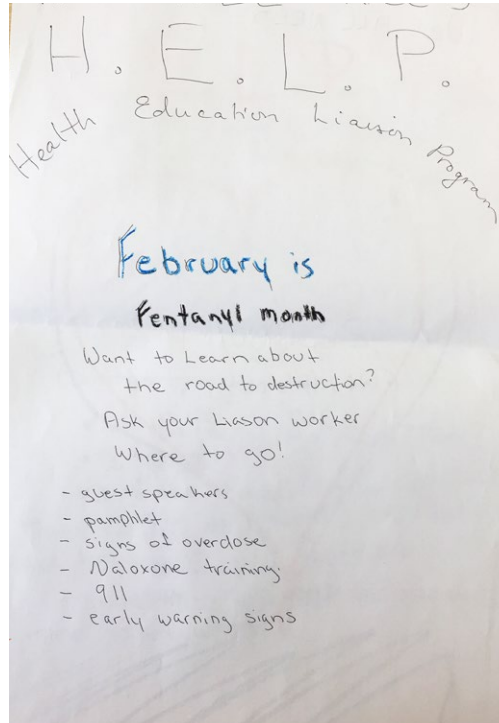 H. E. L. P.
Health Education Liaison Program
February is
Fentanyl month
Want to Learn about
the road to destruction?
Ask your Liason worker
Where to go!
- guest speakers
- pamphlet
- signs of overdose
- Naloxone training.
- 911
- early warning signs